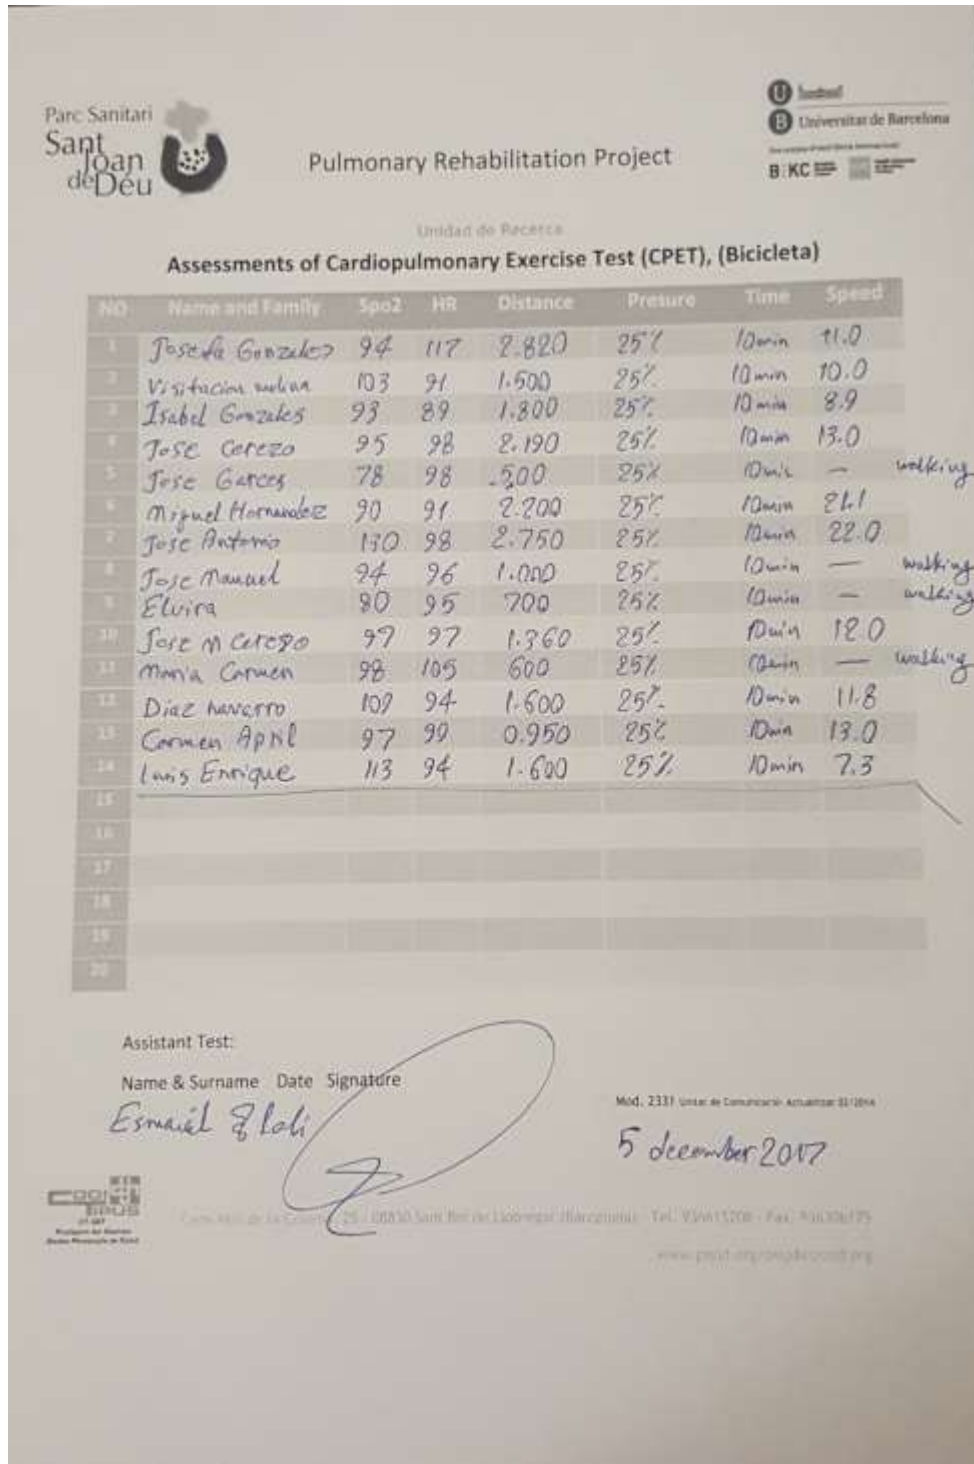 Parc Sanitari
Sant
Joan
de Déu
Universitat de Barcelona
B:KC
Pulmonary Rehabilitation Project
Unidad de Recerca
Assessments of Cardiopulmonary Exercise Test (CPET), (Bicicleta)
NO Name and Family Spo2 HR Distance Presure Time Speed
1 Josefa Gonzalez 94 117 2.820 25% 10min 11.0
2 Visitacion molina 103 91 1.500 25% 10min 10.0
3 Isabel Gonzales 93 89 1.800 25% 10min 8.9
4 Jose Cerezo 95 98 2.190 25% 10min 13.0
5 Jose Garces 78 98 .500 25% 10min — walking
6 Miguel Hornandez 90 91 2.200 25% 10min 21.1
7 Jose Antonio 130 98 2.750 25% 10min 22.0
8 Jose Manuel 94 96 1.000 25% 10min — walking
9 Elvira 80 95 700 25% 10min — walking
10 Jose M Cerezo 97 97 1.360 25% 10min 12.0
11 Maria Carmen 98 105 600 25% 10min — walking
12 Diaz navarro 109 94 1.600 25% 10min 11.8
13 Carmen April 97 99 0.950 25% 10min 13.0
14 Luis Enrique 113 94 1.600 25% 10min 7.3
15
16
17
18
19
20
Assistant Test:
Name & Surname Date Signature
Esmaiel
Mod. 2331 Unitat de Comunicació
5 december 2017